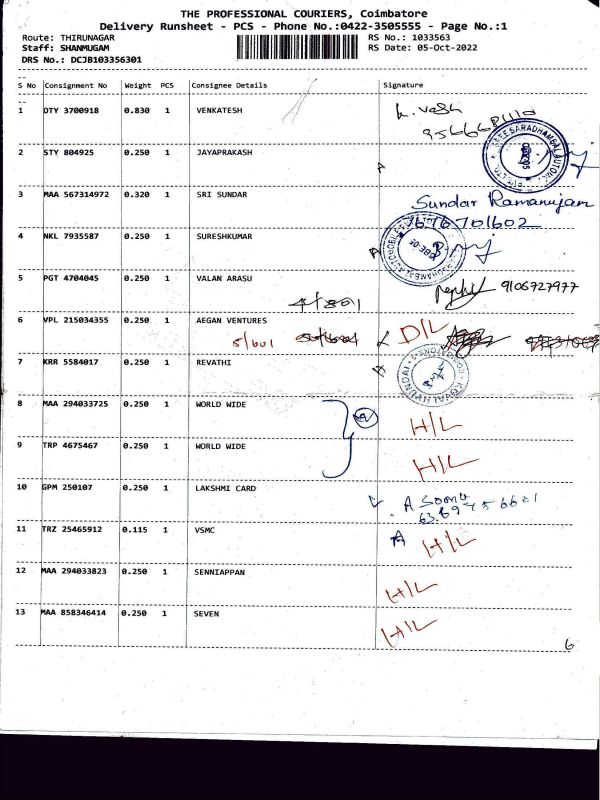 THE PROFESSIONAL COURIERS, Coimbatore
Delivery Runsheet - PCS - Phone No.:0422-3505555 - Page No.:1
Route: THIRUNAGAR RS No.: 1033563
Staff: SHANMUGAM RS Date: 05-Oct-2022
DRS No.: DCJB103356301
S No Consignment No Weight PCS Consignee Details Signature
1 OTY 3700918 0.830 1 VENKATESH
2 STY 804925 0.250 1 JAYAPRAKASH
3 MAA 567314972 0.320 1 SRI SUNDAR Sundar Ramanujan
7676701602
4 NKL 7935587 0.250 1 SURESHKUMAR
5 PGT 4704045 0.250 1 VALAN ARASU 9106727977
4/801
6 VPL 215034355 0.250 1 AEGAN VENTURES D/L
5/601
7 KRR 5584017 0.250 1 REVATHI
KOVAI HYUNDAI
8 MAA 294033725 0.250 1 WORLD WIDE H/L
9 TRP 4675467 0.250 1 WORLD WIDE H/L
10 GPM 250107 0.250 1 LAKSHMI CARD A Somu
11 TRZ 25465912 0.115 1 VSMC A H/L
12 MAA 294033823 0.250 1 SENNIAPPAN H/L
13 MAA 858346414 0.250 1 SEVEN H/L
6